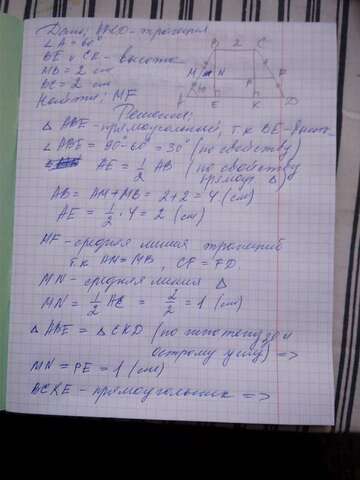 Дано: ABCD - трапеция
∠A = 60°
BE и CK - высоты
MB = 2 см
BC = 2 см
Найти: MF
B 2 C
M N P F
A E K D
Решение:
△ ABE - прямоугольный, т.к BE - высота
∠ABE = 90-60° = 30° (по свойству)
AE = 1/2 AB (по свойству
прямоуг. △)
AB = AM+MB = 2+2 = 4 (см)
AE = 1/2 · 4 = 2 (см)
MF - средняя линия трапеции
т.к AM = MB, CF = FD
MN - средняя линия △
MN = 1/2 AE = 2/2 = 1 (см)
△ ABE = △ CKD (по гипотенузе и
острому углу) =>
MN = PF = 1 (см)
BCKE - прямоугольник =>